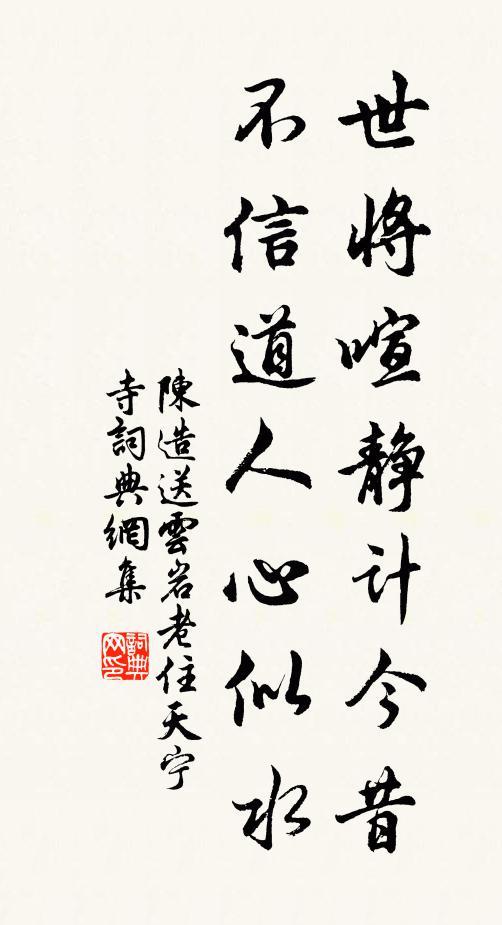 世將喧静计今昔
不信道人心似水
陳造送雲岩老住天宁
寺詞典網集
詞典网印